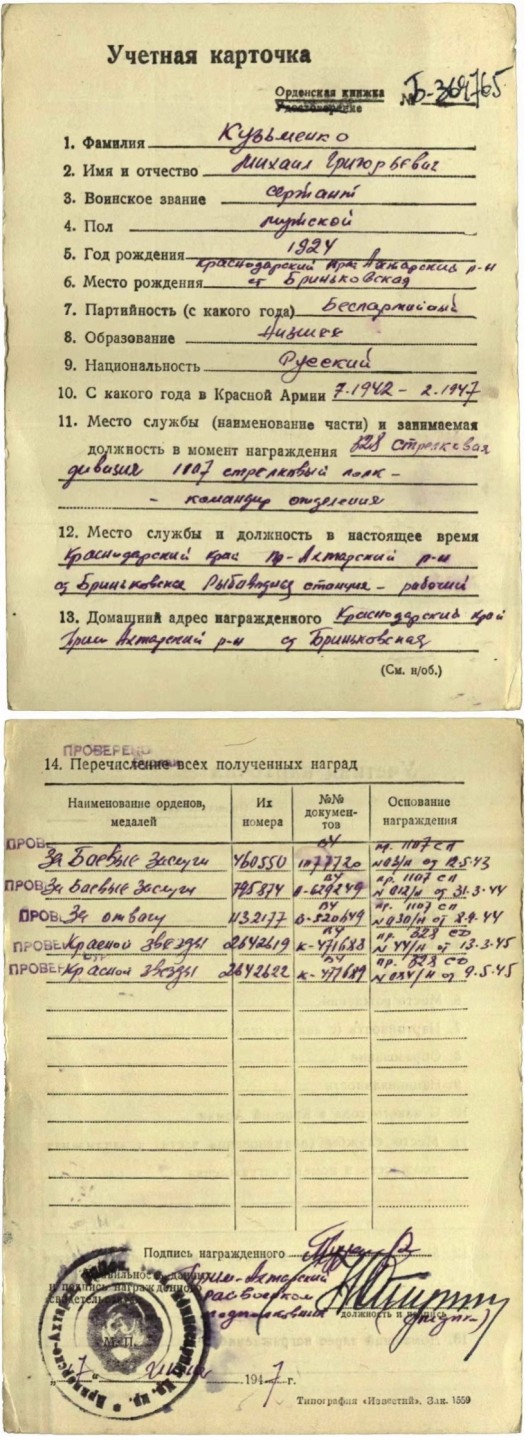 Учетная карточка
Орденская книжка № Б-369765
Удостоверение
1. Фамилия Кузьменко
2. Имя и отчество Михаил Григорьевич
3. Воинское звание сержант
4. Пол мужской
5. Год рождения 1924
Краснодарский Прим Ахтарский р-н
6. Место рождения ст Бриньковская
7. Партийность (с какого года) Беспартийный
8. Образование Низшее
9. Национальность Русский
10. С какого года в Красной Армии 7.1942 - 2.1947
11. Место службы (наименование части) и занимаемая
должность в момент награждения 328 стрелковая
дивизия 1107 стрелковый полк -
- командир отделения
12. Место службы и должность в настоящее время
Краснодарский край Пр-Ахтарский р-н
ст Бриньковская Рыбаводная станция - рабочий
13. Домашний адрес награжденного Краснодарский край
Прим Ахтарский р-н ст Бриньковская
(См. н/об.)
ПРОВЕРЕНО
14. Перечисление всех полученных наград
Наименование орденов, медалей Их номера №№ документов Основание награждения
ПРОВ За Боевые заслуги 460550 пр. 1107 сп от 12.5.43
ПРОВ За Боевые Заслуги 795874 В4 пр. 1107 сп № 012/н от 31.3.44
ПРОВ. За отвагу 1132177 В4 пр. 1107 сп № 030/н от 8.9.44
ПРОВЕ Красной Звезды 2642619 В4 К-471688 пр. 328 сд № 44/н от 13.3.45
ПРОВЕР Красной звезды 2642622 В4 К-471689 пр. 328 сд от 9.5.45
Подпись награжденного
Правильность данных
и подпись награжденного
свидетельствую
Прим-Ахтарский
райвоенком
подполковник
должность и подпись
М. П.
1947 г.
Типография «Известий». Зак. 1559